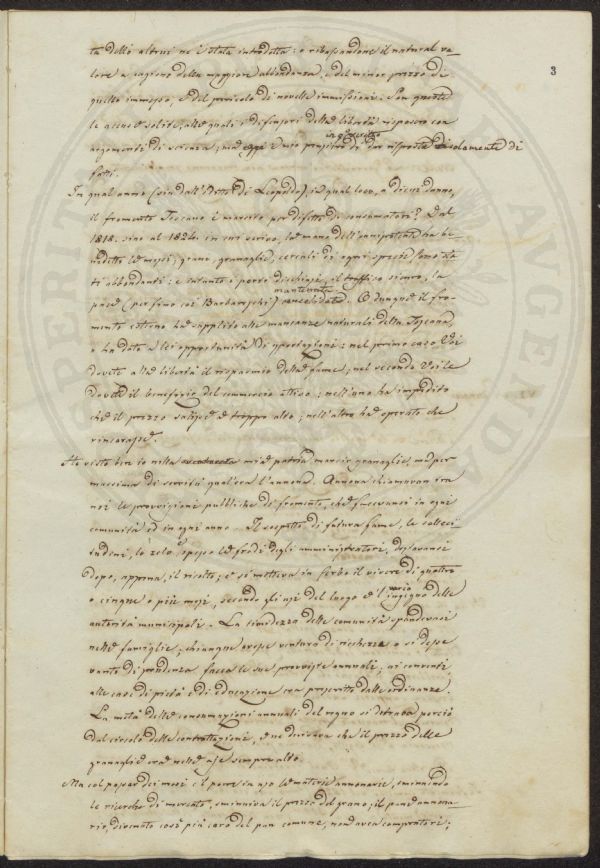 3
ta dello altrui ne è stata introdotta: e ribassandone il natural va-
lore a cagione della maggiore abbondanza, e del minor prezzo di
quello immesso, e del pericolo di novelle immissioni. Son queste
le accuse solite, alle quali i difensori della libertà risposero con
argomenti di scienza; ma è mio proposito di dar risposta solamente di
fatti.
In qual anno (sin dall'età di Leopoldo), in qual loco, a dieci danno,
il frumento Toscano è marcito per difetto di consumatori? Dal
1818. sino al 1824. in cui scrivo, la mano dell'onnipotente ha be-
nedetto le messi; grano, granaglie, cereali di ogni specie sono sta-
ti abbondanti: e intanto i porti dischiusi, il traffico sicuro, la
pace (per fino coi Barbareschi) mantenuta. O dunque il fru-
mento esterno ha supplito alle mancanze naturali della Toscana,
o ha dato a lei opportunità di esportazione: nel primo caso Voi
dovete alla libertà il risparmio della fame; nel secondo Voi le
dovete il beneficio del commercio attivo; nell'uno ha impedito
che il prezzo salisse troppo alto; nell'altro ha operato che
rincarasse.
Ho visto ben io nella mia patria marcir granaglie, ma per
massima di servitù qual'era l'annona. Annona chiamavan tra
noi le provvigioni pubbliche di frumento, che facevansi in ogni
comunità ed in ogni anno. Il sospetto di futura fame, le solleci-
tudini, lo zelo, spesso le frodi degli amministratori,
dopo, appena, il ricolto; e si metteva in serbo il vivere di quattro
o cinque o più mesi, secondo gli usi del luogo e l'vario ingegno delle
autorità municipali. La timidezza delle comunità spandevasi
nelle famiglie; chiunque avesse ventura di ricchezza o si desse
vanto di prudenza facea le sue provviste annuali; ai conventi,
alle case di pietà e di educazione era prescritto dalle ordinanze.
La metà delle consumazioni annuali del regno si detraeva perciò
dal circolo delle contrattazioni, e ne derivava che il prezzo delle
granaglie era nella aje sempre alto.
Ma col passar dei mesi e il porre in uso le materie annonarie, scemando
le ricerche di mercato, sminuiva il prezzo del grano; il pane annona-
rio, divenuto così più caro del pan comune, non avea compratori;